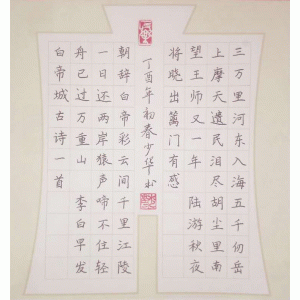 三万里河东入海五千仞岳
上摩天遗民泪尽胡尘里南
望王师又一年 陆游秋夜
将晓出篱门有感
丁酉年初春少华书
朝辞白帝彩云间千里江陵
一日还两岸猿声啼不住轻
舟已过万重山 李白早发
白帝城古诗一首